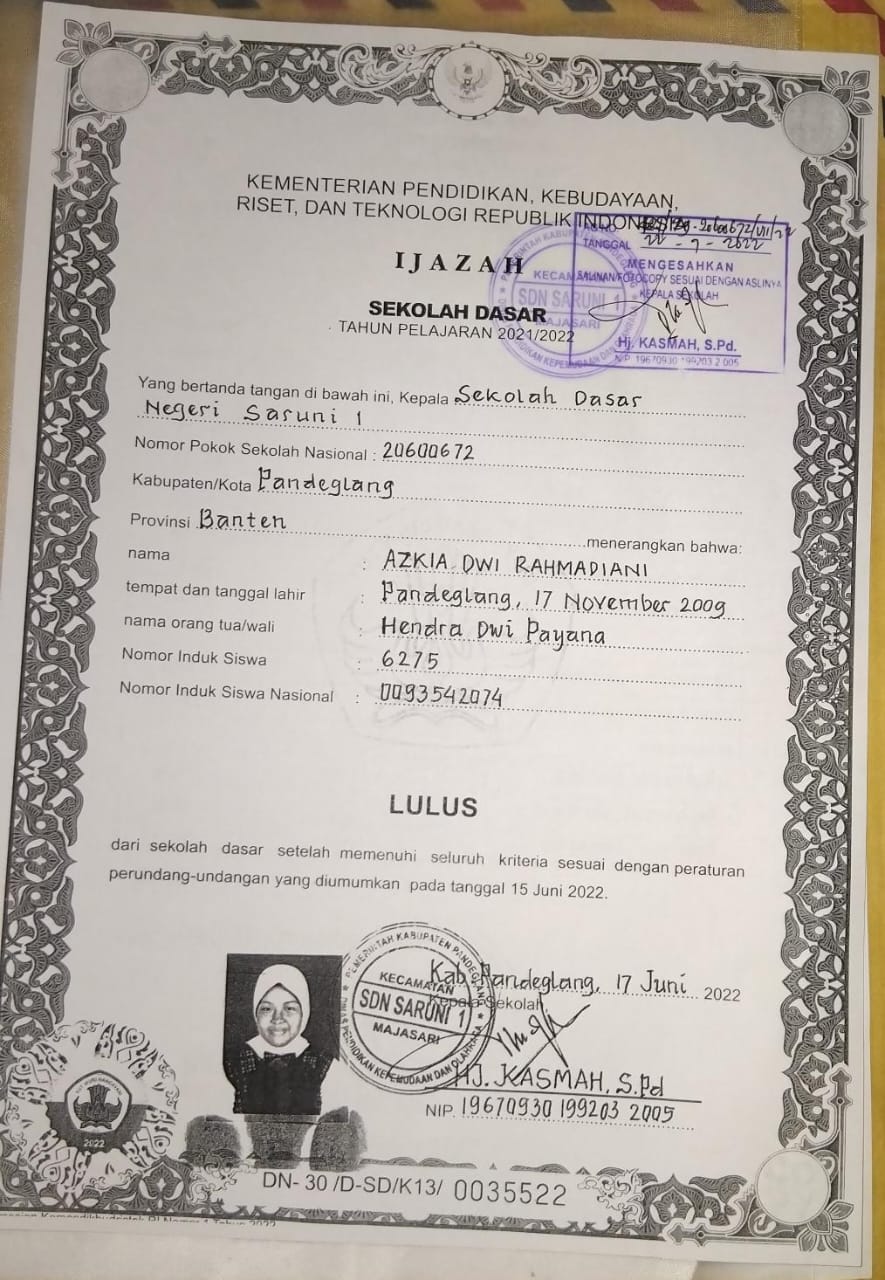 KEMENTERIAN PENDIDIKAN, KEBUDAYAAN,
RISET, DAN TEKNOLOGI REPUBLIK INDONESIA
TANGGAL 22 - 7 - 2022
MENGESAHKAN
SALINAN/FOTOCOPY SESUAI DENGAN ASLINYA
KEPALA SEKOLAH
Hj. KASMAH, S.Pd.
NIP. 19670930 199203 2 005
KECAMATAN
SDN SARUNI 1
MAJASARI
IJAZAH
SEKOLAH DASAR
TAHUN PELAJARAN 2021/2022
Yang bertanda tangan di bawah ini, Kepala Sekolah Dasar
Negeri Saruni 1
Nomor Pokok Sekolah Nasional : 20600672
Kabupaten/Kota Pandeglang
Provinsi Banten menerangkan bahwa:
nama : AZKIA DWI RAHMADIANI
tempat dan tanggal lahir : Pandeglang, 17 November 2009
nama orang tua/wali : Hendra Dwi Payana
Nomor Induk Siswa : 6275
Nomor Induk Siswa Nasional : 0093542074
LULUS
dari sekolah dasar setelah memenuhi seluruh kriteria sesuai dengan peraturan
perundang-undangan yang diumumkan pada tanggal 15 Juni 2022.
PEMERINTAH KABUPATEN PANDEGLANG
KECAMATAN
SDN SARUNI 1
MAJASARI
PENDIDIKAN KEPEMUDAAN DAN OLAHRAGA
Kab. Pandeglang, 17 Juni 2022
Kepala Sekolah
HJ. KASMAH, S.Pd
NIP. 19670930 199203 2005
2022
DN- 30 /D-SD/K13/ 0035522